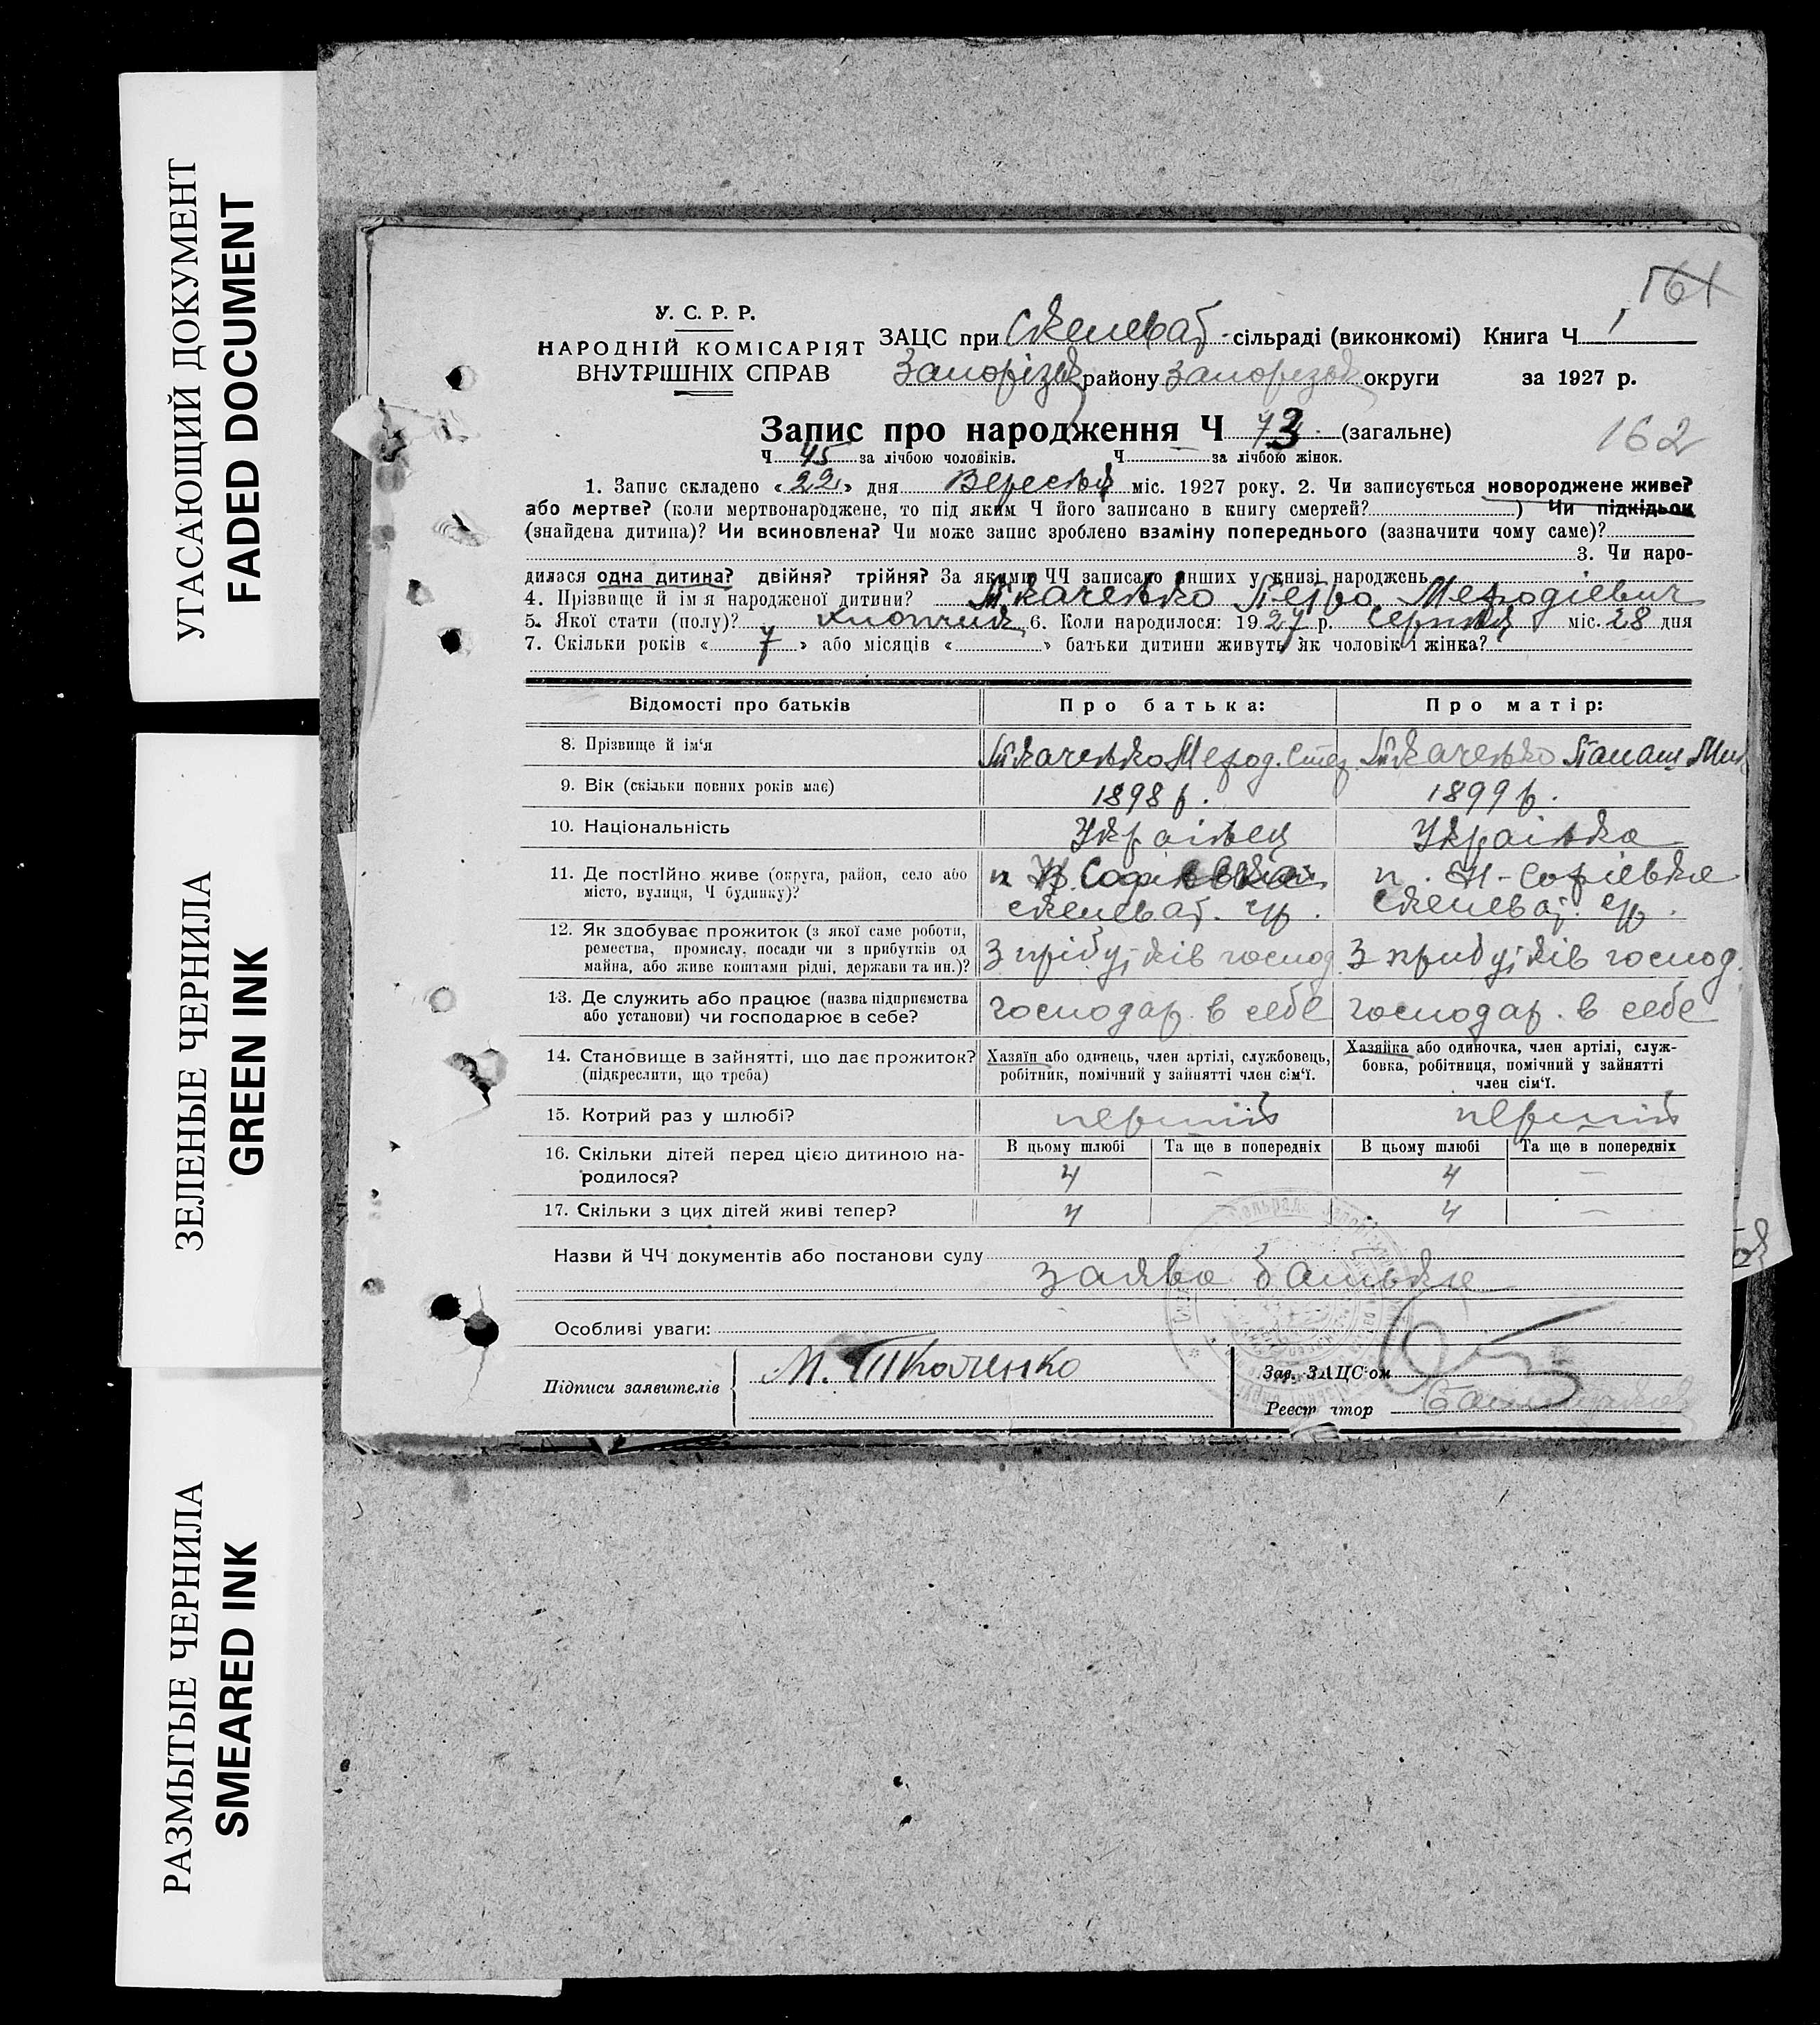 УГАСАЮЩИЙ ДОКУМЕНТ
FADED DOCUMENT
ЗЕЛЕНЫЕ ЧЕРНИЛА
GREEN INK
РАЗМЫТЫЕ ЧЕРНИЛА
SMEARED INK
161
У. С. Р. Р.
НАРОДНІЙ КОМІСАРІЯТ
ВНУТРІШНІХ СПРАВ
ЗАЦС при Скелеват - сільраді (виконкомі) Книга Ч 1
Запорізьк району Запорізьк округи за 1927 р.
Запис про народження Ч 73 (загальне)
162
Ч 45 за лічбою чоловіків. Ч за лічбою жінок.
1. Запис складено «22» дня Вересня міс. 1927 року. 2. Чи записується новороджене живе?
або мертве? (коли мертвонароджене, то під яким Ч його записано в книгу смертей? ) Чи підкідьок
(знайдена дитина)? Чи всиновлена? Чи може запис зроблено взаміну попереднього (зазначити чому саме)?
3. Чи наро-
дилася одна дитина? двійня? трійня? За якими ЧЧ записано инших у книзі народжень
4. Прізвище й ім'я народженої дитини? Ткаченко Петро Мефодієвич
5. Якої стати (полу)? хлопчик 6. Коли народилося: 1927 р. Серпня міс. 28 дня
7. Скільки років «7» або місяців « » батьки дитини живуть як чоловік і жінка?
Відомості про батьків Про батька: Про матір:
8. Прізвище й ім'я Ткаченко Мефод. Степ Ткаченко Палаш Мих
9. Вік (скільки повних років має) 1898 р. 1899 р.
10. Національність Українец Українка
11. Де постійно живе (округа, район, село або місто, вулиця, Ч будинку)?
п Н Софіевка п. Н-Софіевка
скелеват. с/р. скелеват. с/р.
12. Як здобуває прожиток (з якої саме роботи,
ремества, промислу, посади чи з прибутків од
майна, або живе коштами рідні, держави та ин.)? З прібутків господ З прибутків господ.
13. Де служить або працює (назва підприємства
або установи) чи господарює в себе? господар. в себе господар. в себе
14. Становище в зайнятті, що дає прожиток?
(підкреслити, що треба)
Хазяїн або одинець, член артілі, службовець,
робітник, помічний у зайнятті член сім'ї.
Хазяйка або одиночка, член артілі, служ-
бовка, робітниця, помічний у зайнятті
член сім'ї.
15. Котрий раз у шлюбі? перший перший
16. Скільки дітей перед цією дитиною на-
родилося?
В цьому шлюбі Та ще в попередніх В цьому шлюбі Та ще в попередніх
4 – 4 –
17. Скільки з цих дітей живі тепер? 4 4 –
Назви й ЧЧ документів або постанови суду
заява батька
Особливі уваги:
Підписи заявителів М. Ткаченко
Зав. ЗАЦС'ом
Реєстратор